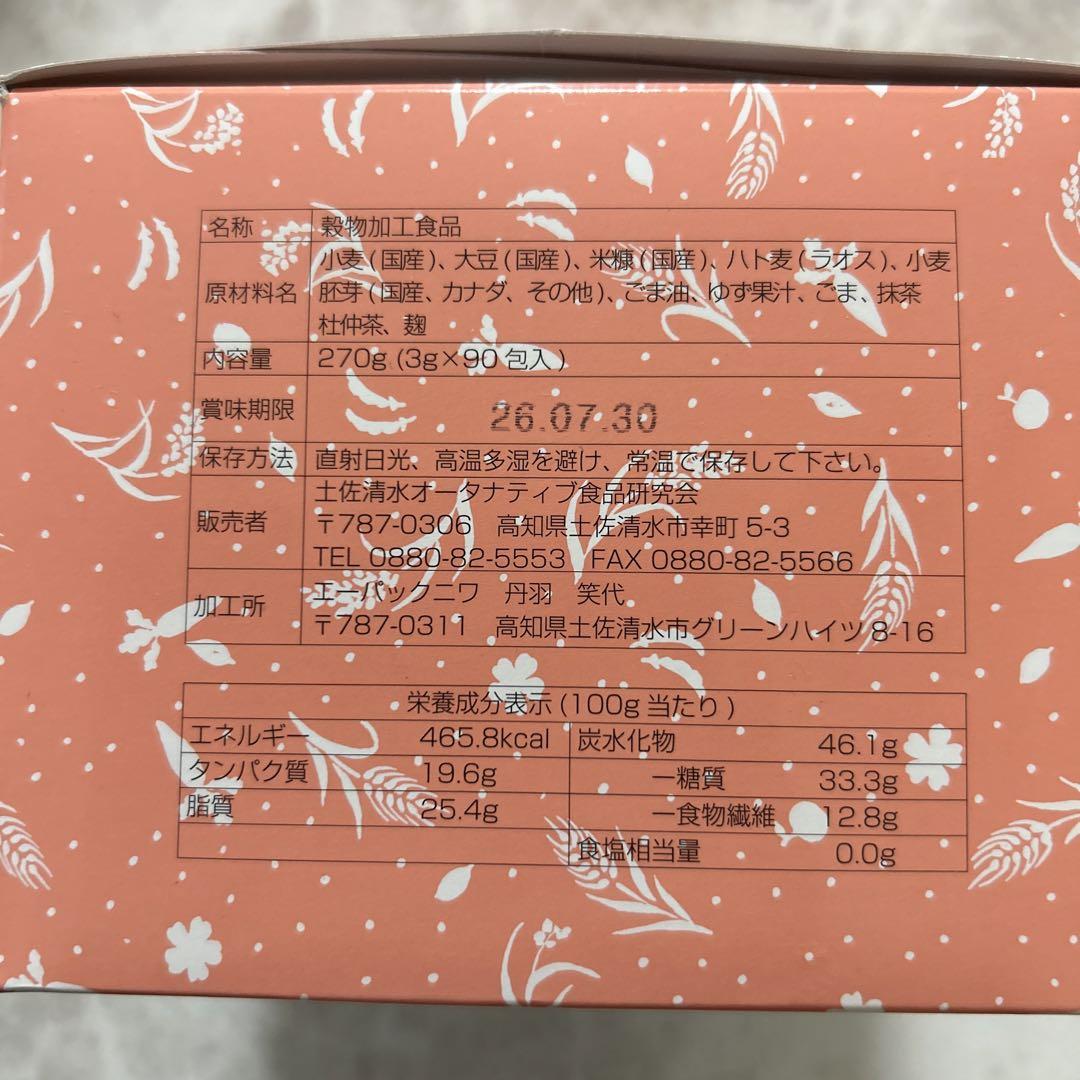 名称 穀物加工食品
原材料名 小麦(国産)、大豆(国産)、米糠(国産)、ハト麦(ラオス)、小麦
胚芽(国産、カナダ、その他)、ごま油、ゆず果汁、ごま、抹茶
杜仲茶、麹
内容量 270g(3g×90包入)
賞味期限 26.07.30
保存方法 直射日光、高温多湿を避け、常温で保存して下さい。
販売者 土佐清水オータナティブ食品研究会
〒787-0306 高知県土佐清水市幸町5-3
TEL 0880-82-5553 FAX 0880-82-5566
加工所 エーパックニワ 丹羽 笑代
〒787-0311 高知県土佐清水市グリーンハイツ8-16
栄養成分表示(100g当たり)
エネルギー 465.8kcal 炭水化物 46.1g
タンパク質 19.6g ー糖質 33.3g
脂質 25.4g ー食物繊維 12.8g
食塩相当量 0.0g